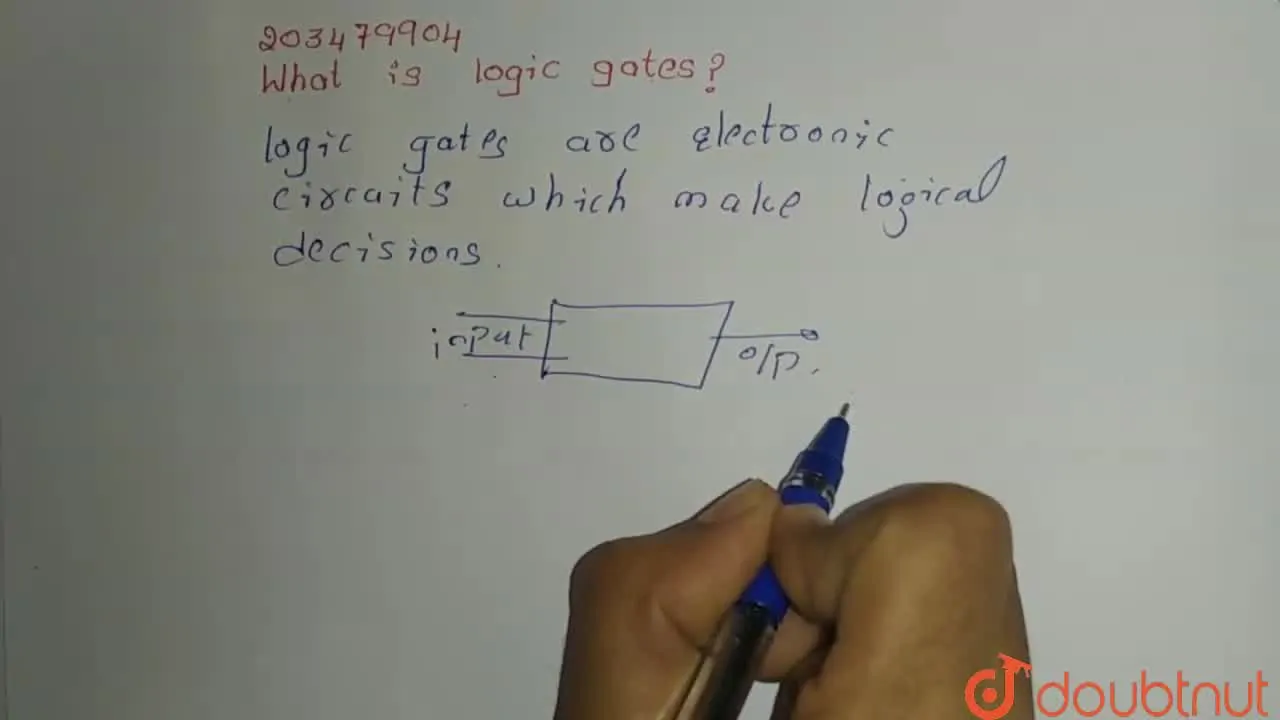 203479904
What is logic gates?
logic gates are electronic
circuits which make logical
decisions.
input
o/p.
doubtnut